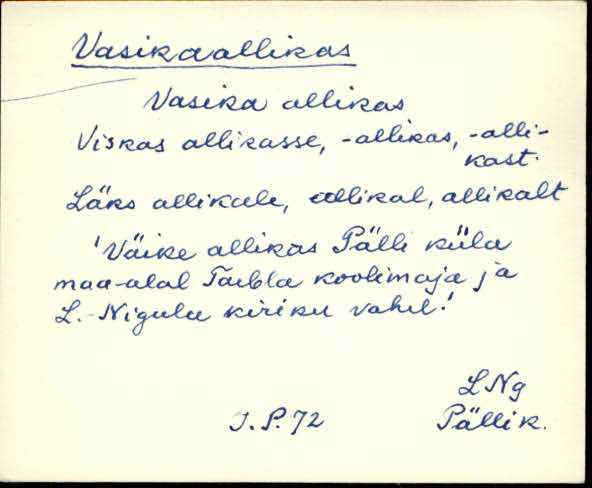 Vasikaallikas
Vasika allikas
Viskas allikasse, -allikas, -alli-
kast.
Läks allikale, allikal, allikalt
'Väike allikas Pälli küla
maa-alal Taebla koolimaja ja
L.-Nigula kiriku vahel.'
LNg
J.P.72 Pällik.